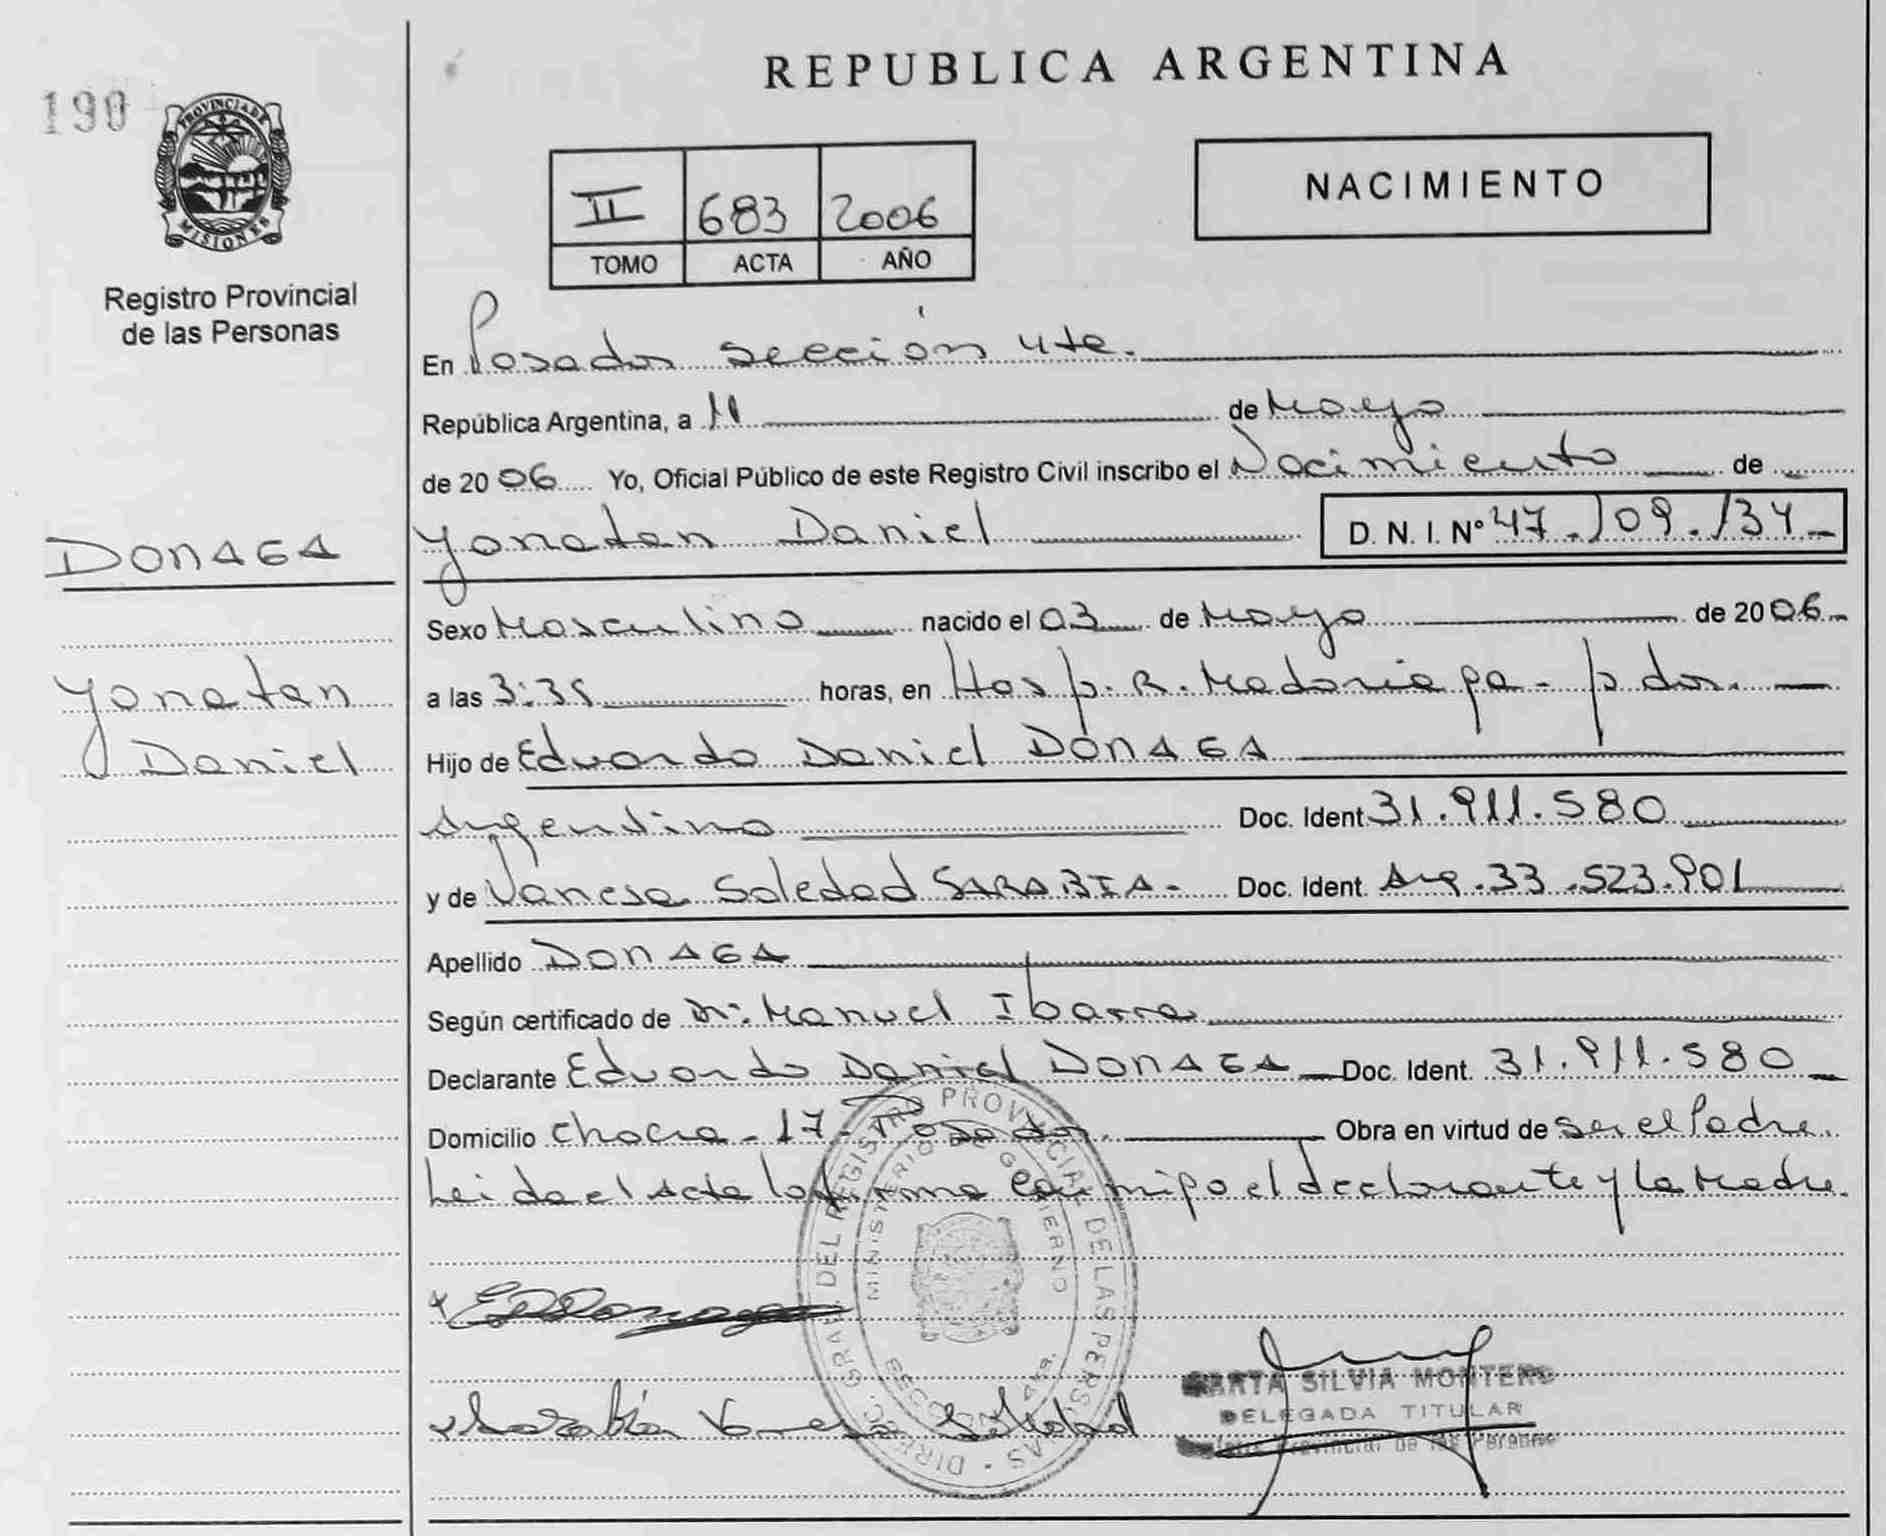 REPUBLICA ARGENTINA
190
PROVINCIA DE
MISIONES
Registro Provincial
de las Personas
II 683 2006
TOMO ACTA AÑO
NACIMIENTO
En Posadas sección 4ta.
República Argentina, a 11 de Mayo
de 2006 Yo, Oficial Público de este Registro Civil inscribo el Nacimiento de
DONAGA
Yonatan Daniel D. N. I. Nº 47.109.134
Sexo Masculino nacido el 03 de Mayo de 2006
Yonatan
Daniel
a las 3:35 horas, en Hosp. R. Madariaga - pdas.
Hijo de Eduardo Daniel DONAGA
Argentino Doc. Ident 31.911.580
y de Vanesa Soledad SARABIA - Doc. Ident. Arg. 33.523.901
Apellido DONAGA
Según certificado de Dr. Manuel Ibarra
Declarante Eduardo Daniel DONAGA Doc. Ident. 31.911.580
Domicilio chacra - 17 - Posadas. Obra en virtud de ser el Padre.
Leida el Acta la firma conmigo el declarante y la Madre.
DIREC. GRAL. DEL REGISTRO PROVINCIAL DE LAS PERSONAS
MINISTERIO DE GOBIERNO
Sarabia Vanesa Soledad
MARTA SILVIA MONTERO
DELEGADA TITULAR
Registro Provincial de las Personas